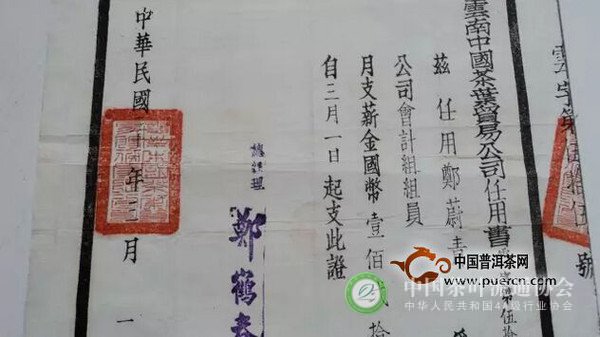 雲字第伍拾伍號
雲南中國茶葉貿易公司任用書
茲任用鄭蔚
公司會計組組員
月支薪金國幣壹佰貳拾
自三月一日起支此證
總經理
鄭鶴春
中華民國
十年三月一
中国普洱茶网
www.puercn.com
中国茶叶流通协会
中华人民共和国4A级行业协会